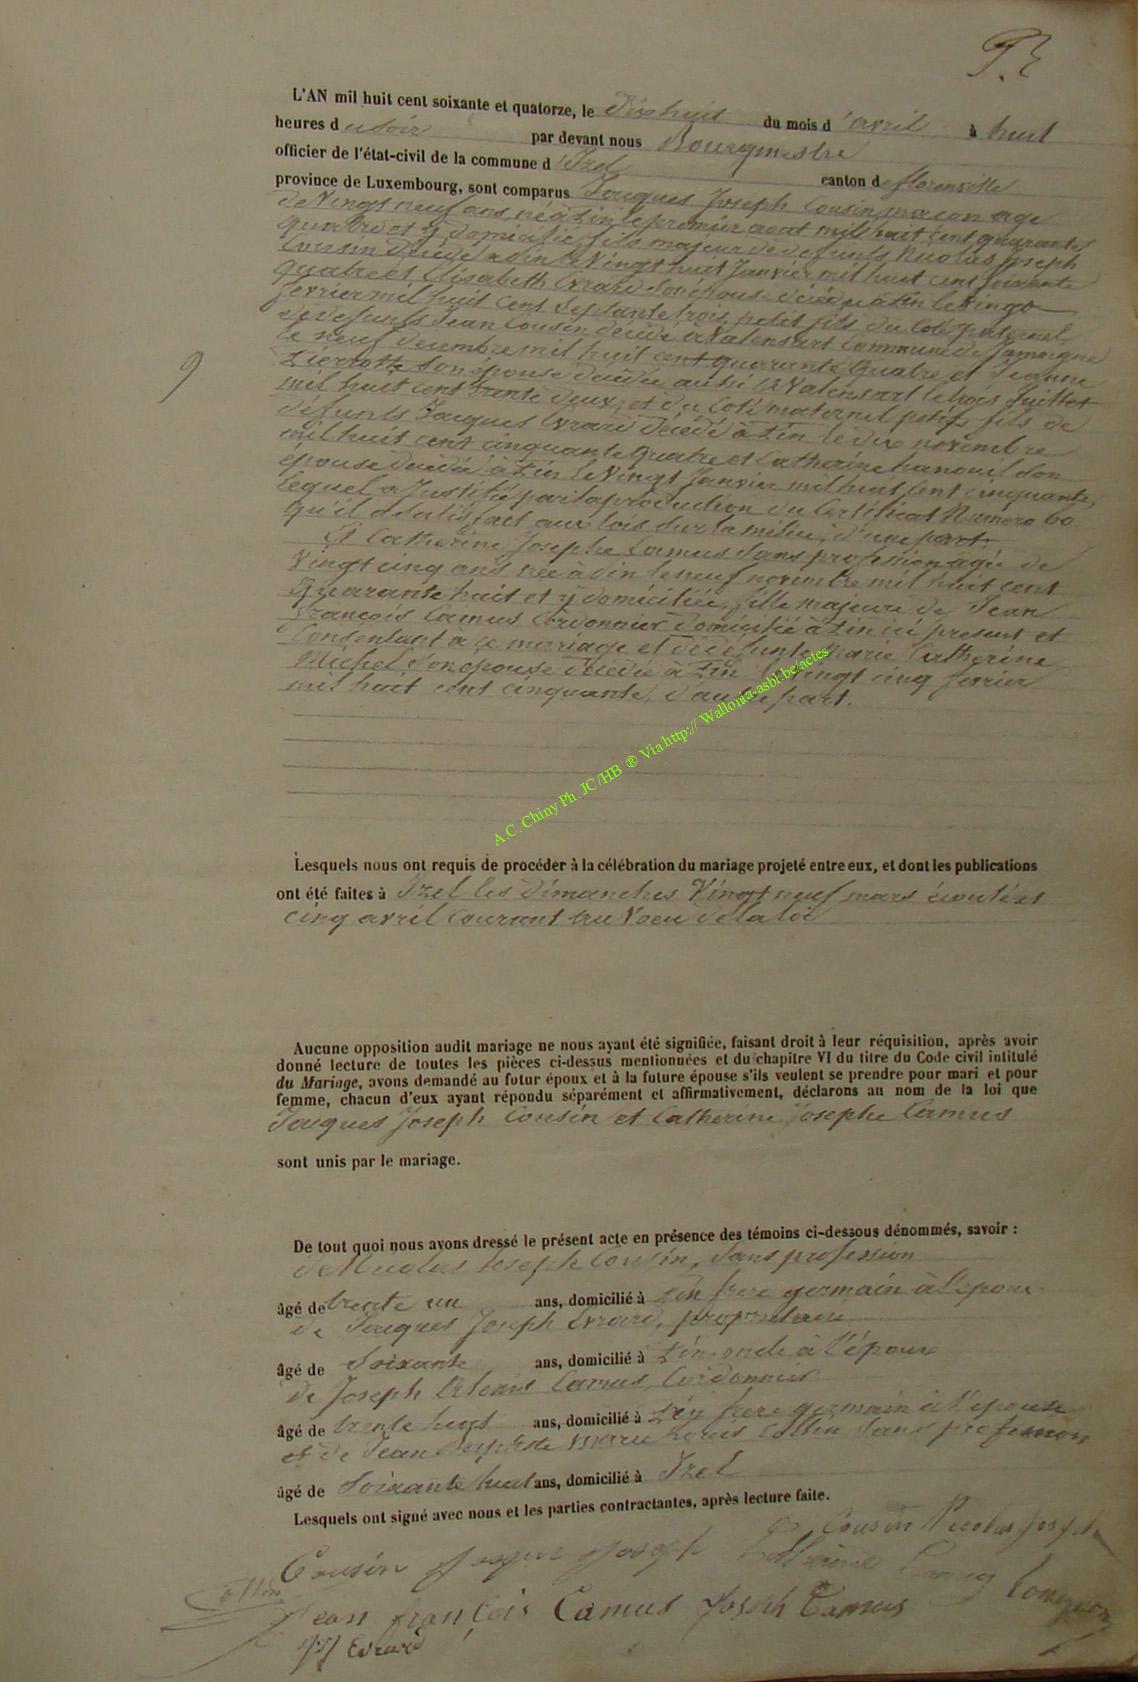 L'AN mil huit cent soixante et quatorze, le Dixhuit du mois d'avril à huit
heures du soir par devant nous Bourgmestre
officier de l'état-civil de la commune d'Izel canton de florenville
province de Luxembourg, sont comparus Jacques Joseph Cousin maçon age
de Vingt neuf ans, né à Pin le premier aout mil huit cent quarante
quatre et y domicilié, fils majeur de defunts Nicolas Joseph
Cousin décédé a Pin le Vingt huit Janvier mil huit cent soixante
quatre et Elisabeth Evrard son épouse décédée à Pin le Vingt
fevrier mil huit cent septante trois, petit fils du coté paternel
de defunts Jean Cousin décédé à Valensart commune de Jamoigne
le neuf decembre mil huit cent quarante quatre et Jeanne
Pierrotte son epouse décédée aussi à Valensart le trois Juillet
mil huit cent trente deux, et du coté maternel petit fils de
défunts Jacques Evrard décédé à Pin le dix novembre
mil huit cent cinquante quatre et Catherine hanouil son
épouse décédée à Pin le Vingt Janvier mil huit cent cinquante,
Lequel a Justifié par la production du Certificat Numero 60
qu'il a satisfait aux lois sur la milice, d'une part.
Et Catherine Josephe Camus sans profession agée de
Vingt cinq ans née à Pin le neuf novembre mil huit cent
Quarante huit et y domiciliée, fille majeure de Jean
François Camus Cordonnier domicilié à Pin ici présent et
Consentant a ce mariage et de defunte Marie Catherine
Michel son epouse décédée à Pin le Vingt cinq fevrier
mil huit cent cinquante, d'autre part.
A.C. Chiny Ph. JC/HB ® Via http:// Wallonia-asbl.be/actes
Lesquels nous ont requis de procéder à la célébration du mariage projeté entre eux, et dont les publications
ont été faites à Izel les Dimanches Vingt neuf mars écoulé et
cinq avril Courant au Voeu de la loi
Aucune opposition audit mariage ne nous ayant été signifiée, faisant droit à leur réquisition, après avoir
donné lecture de toutes les pièces ci-dessus mentionnées et du chapitre VI du titre du Code civil intitulé
du Mariage, avons demandé au futur époux et à la future épouse s'ils veulent se prendre pour mari et pour
femme, chacun d'eux ayant répondu séparément et affirmativement, déclarons au nom de la loi que
Jacques Joseph Cousin et Catherine Josephe Camus
sont unis par le mariage.
De tout quoi nous avons dressé le présent acte en présence des témoins ci-dessous dénommés, savoir :
de Nicolas Joseph Cousin, sans profession
âgé de trente un ans, domicilié à Pin frere germain à l'epoux
de Jacques Joseph Evrard, propriétaire
âgé de Soixante ans, domicilié à Pin oncle à l'époux
de Joseph Camus, Cordonnier
âgé de trente huit ans, domicilié à Pin frère germain à l'epouse
et de Jean Baptiste Marie Louis Collin sans profession
âgé de Soixante huit ans, domicilié à Izel
Lesquels ont signé avec nous et les parties contractantes, après lecture faite.
Cousin Nicolas Joseph
Cousin Jacque Joseph Catherine Camus
Collin Jean françois Camus Joseph Camus
JJ Evrard